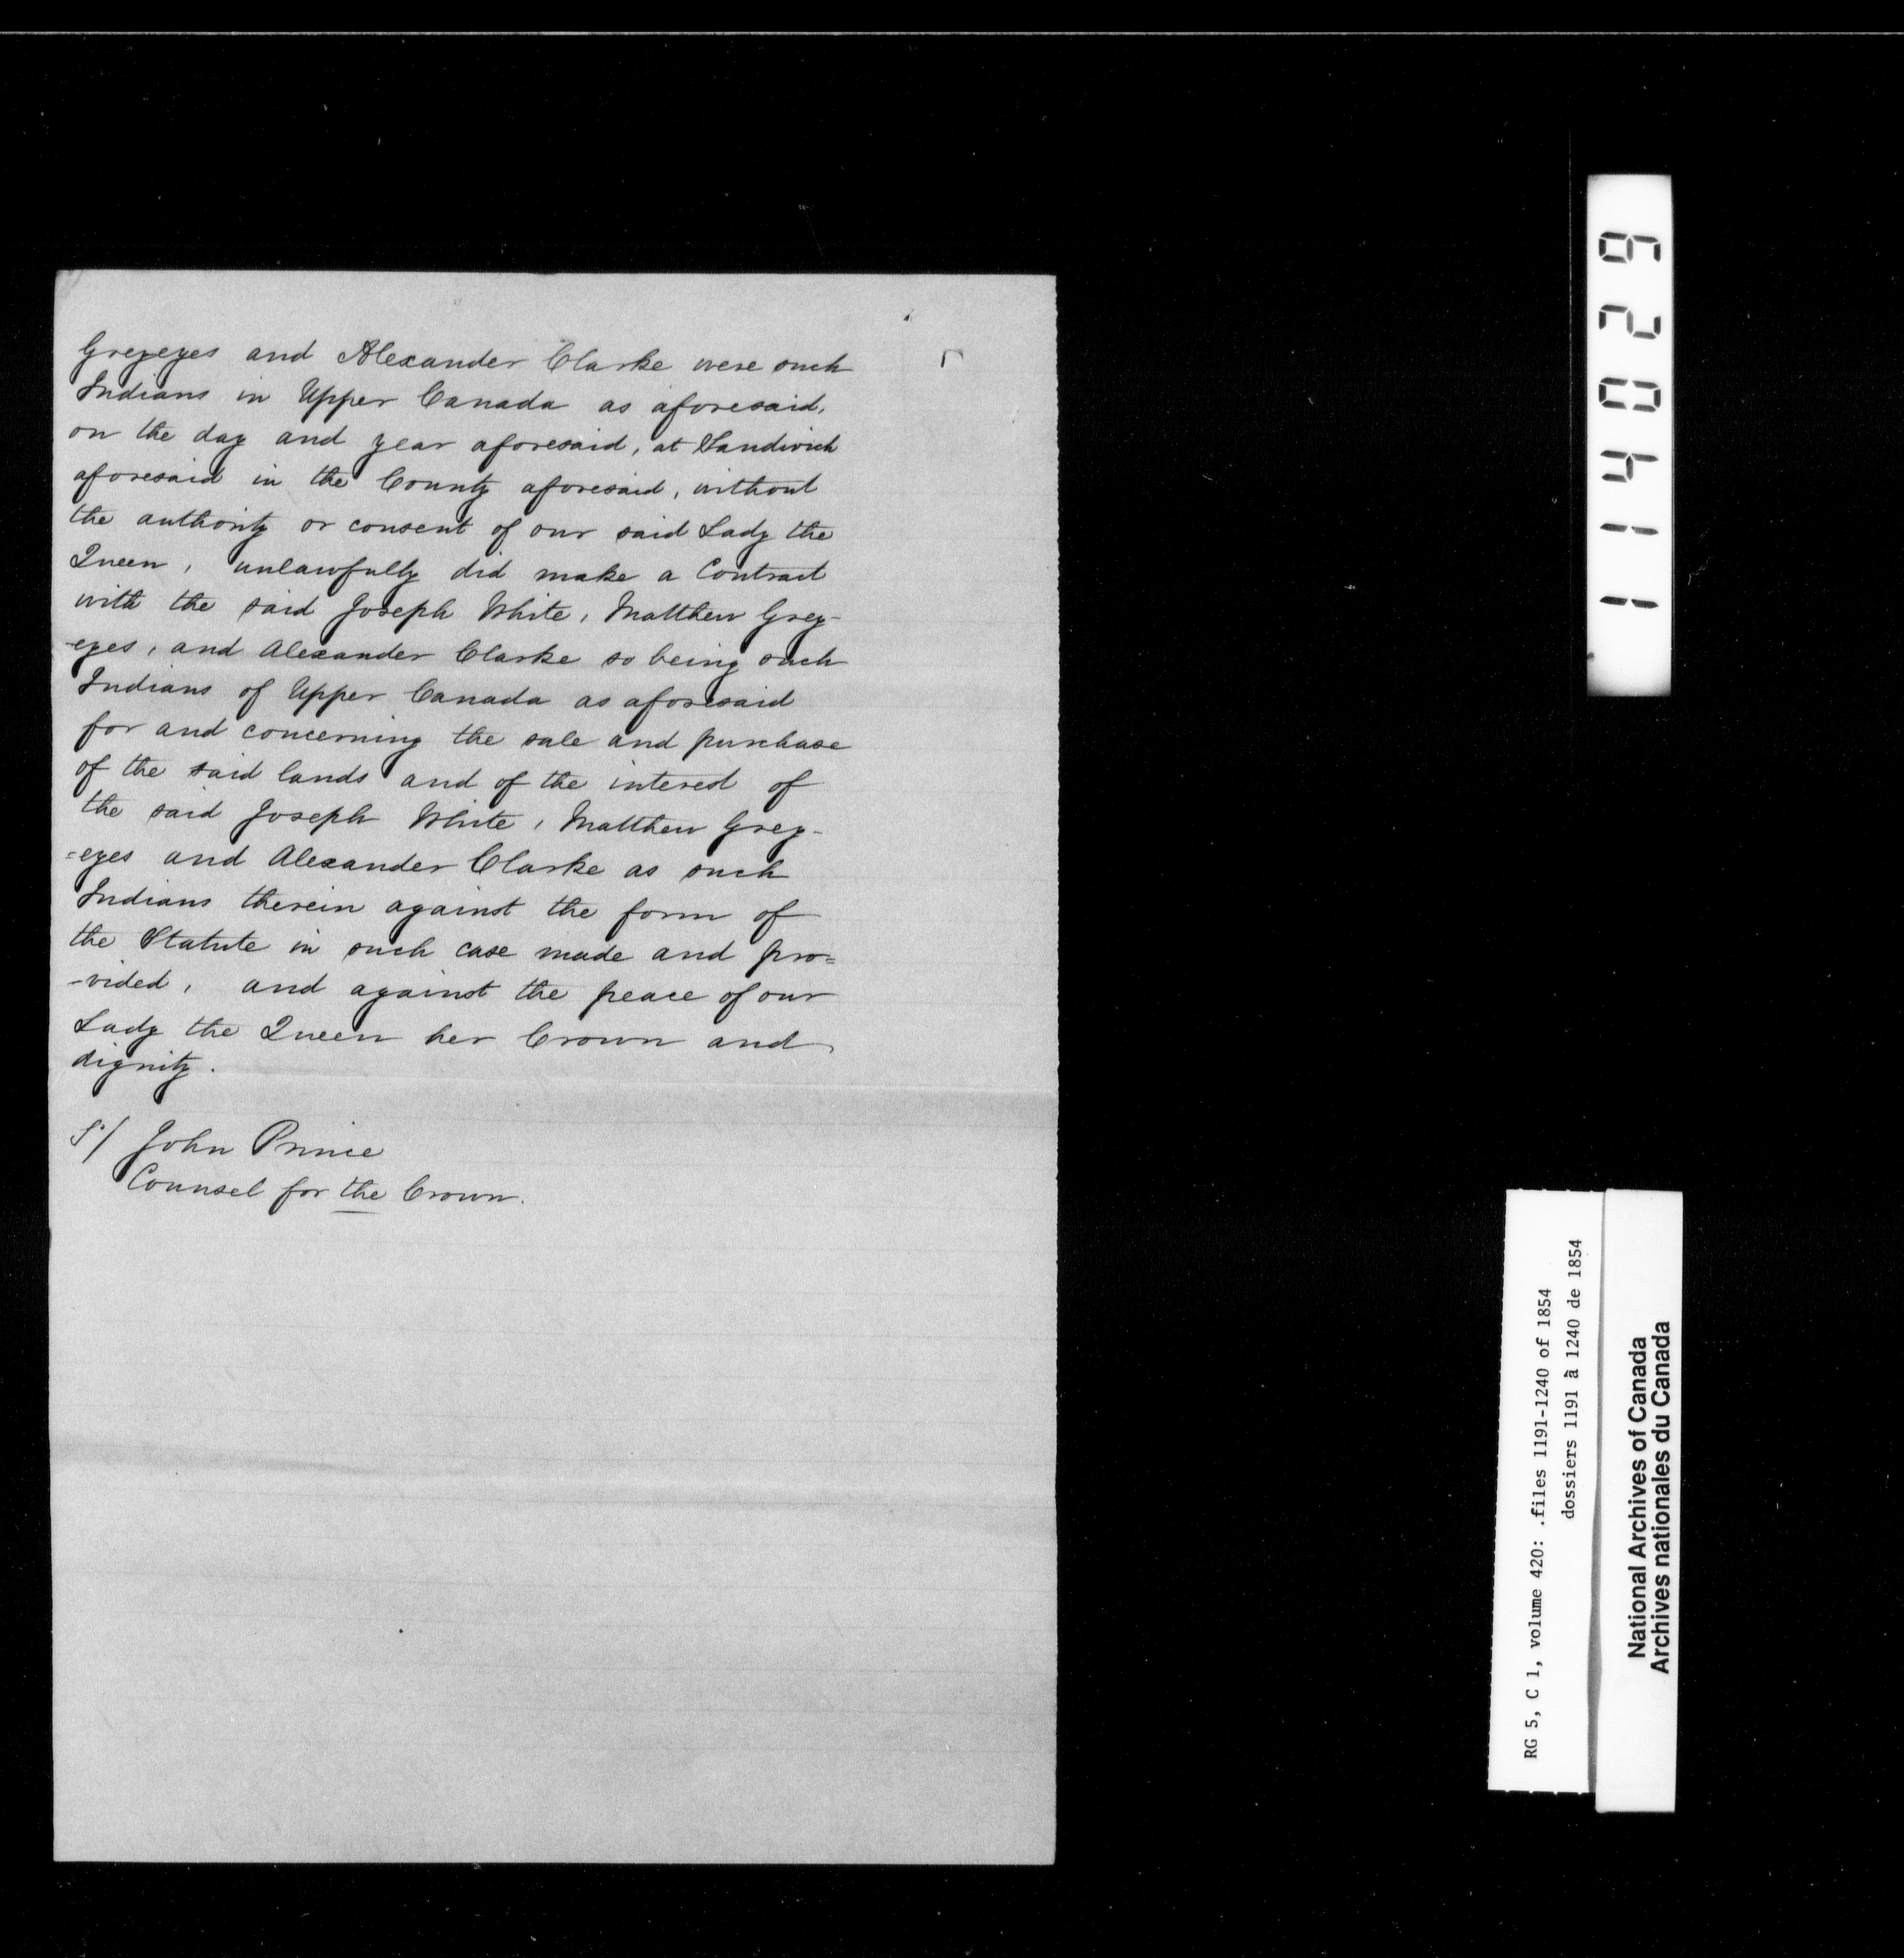 Greyeyes and Alexander Clarke were such
Indians in Upper Canada as aforesaid,
on the day and year aforesaid, at Sandwich
aforesaid in the County aforesaid, without
the authority or consent of our said Lady the
Queen, unlawfully did make a Contract
with the said Joseph White, Matthew Grey-
-eyes, and Alexander Clarke so being such
Indians of Upper Canada as aforesaid
for and concerning the sale and purchase
of the said lands and of the interest of
the said Joseph White, Matthew Grey-
=eyes and Alexander Clarke as such
Indians therein against the form of
the Statute in such case made and pro=
-vided, and against the peace of our
Lady the Queen her Crown and
dignity.
S/ John Prince
Counsel for the Crown.
114029
RG 5, C 1, volume 420: .files 1191-1240 of 1854
dossiers 1191 à 1240 de 1854
National Archives of Canada
Archives nationales du Canada